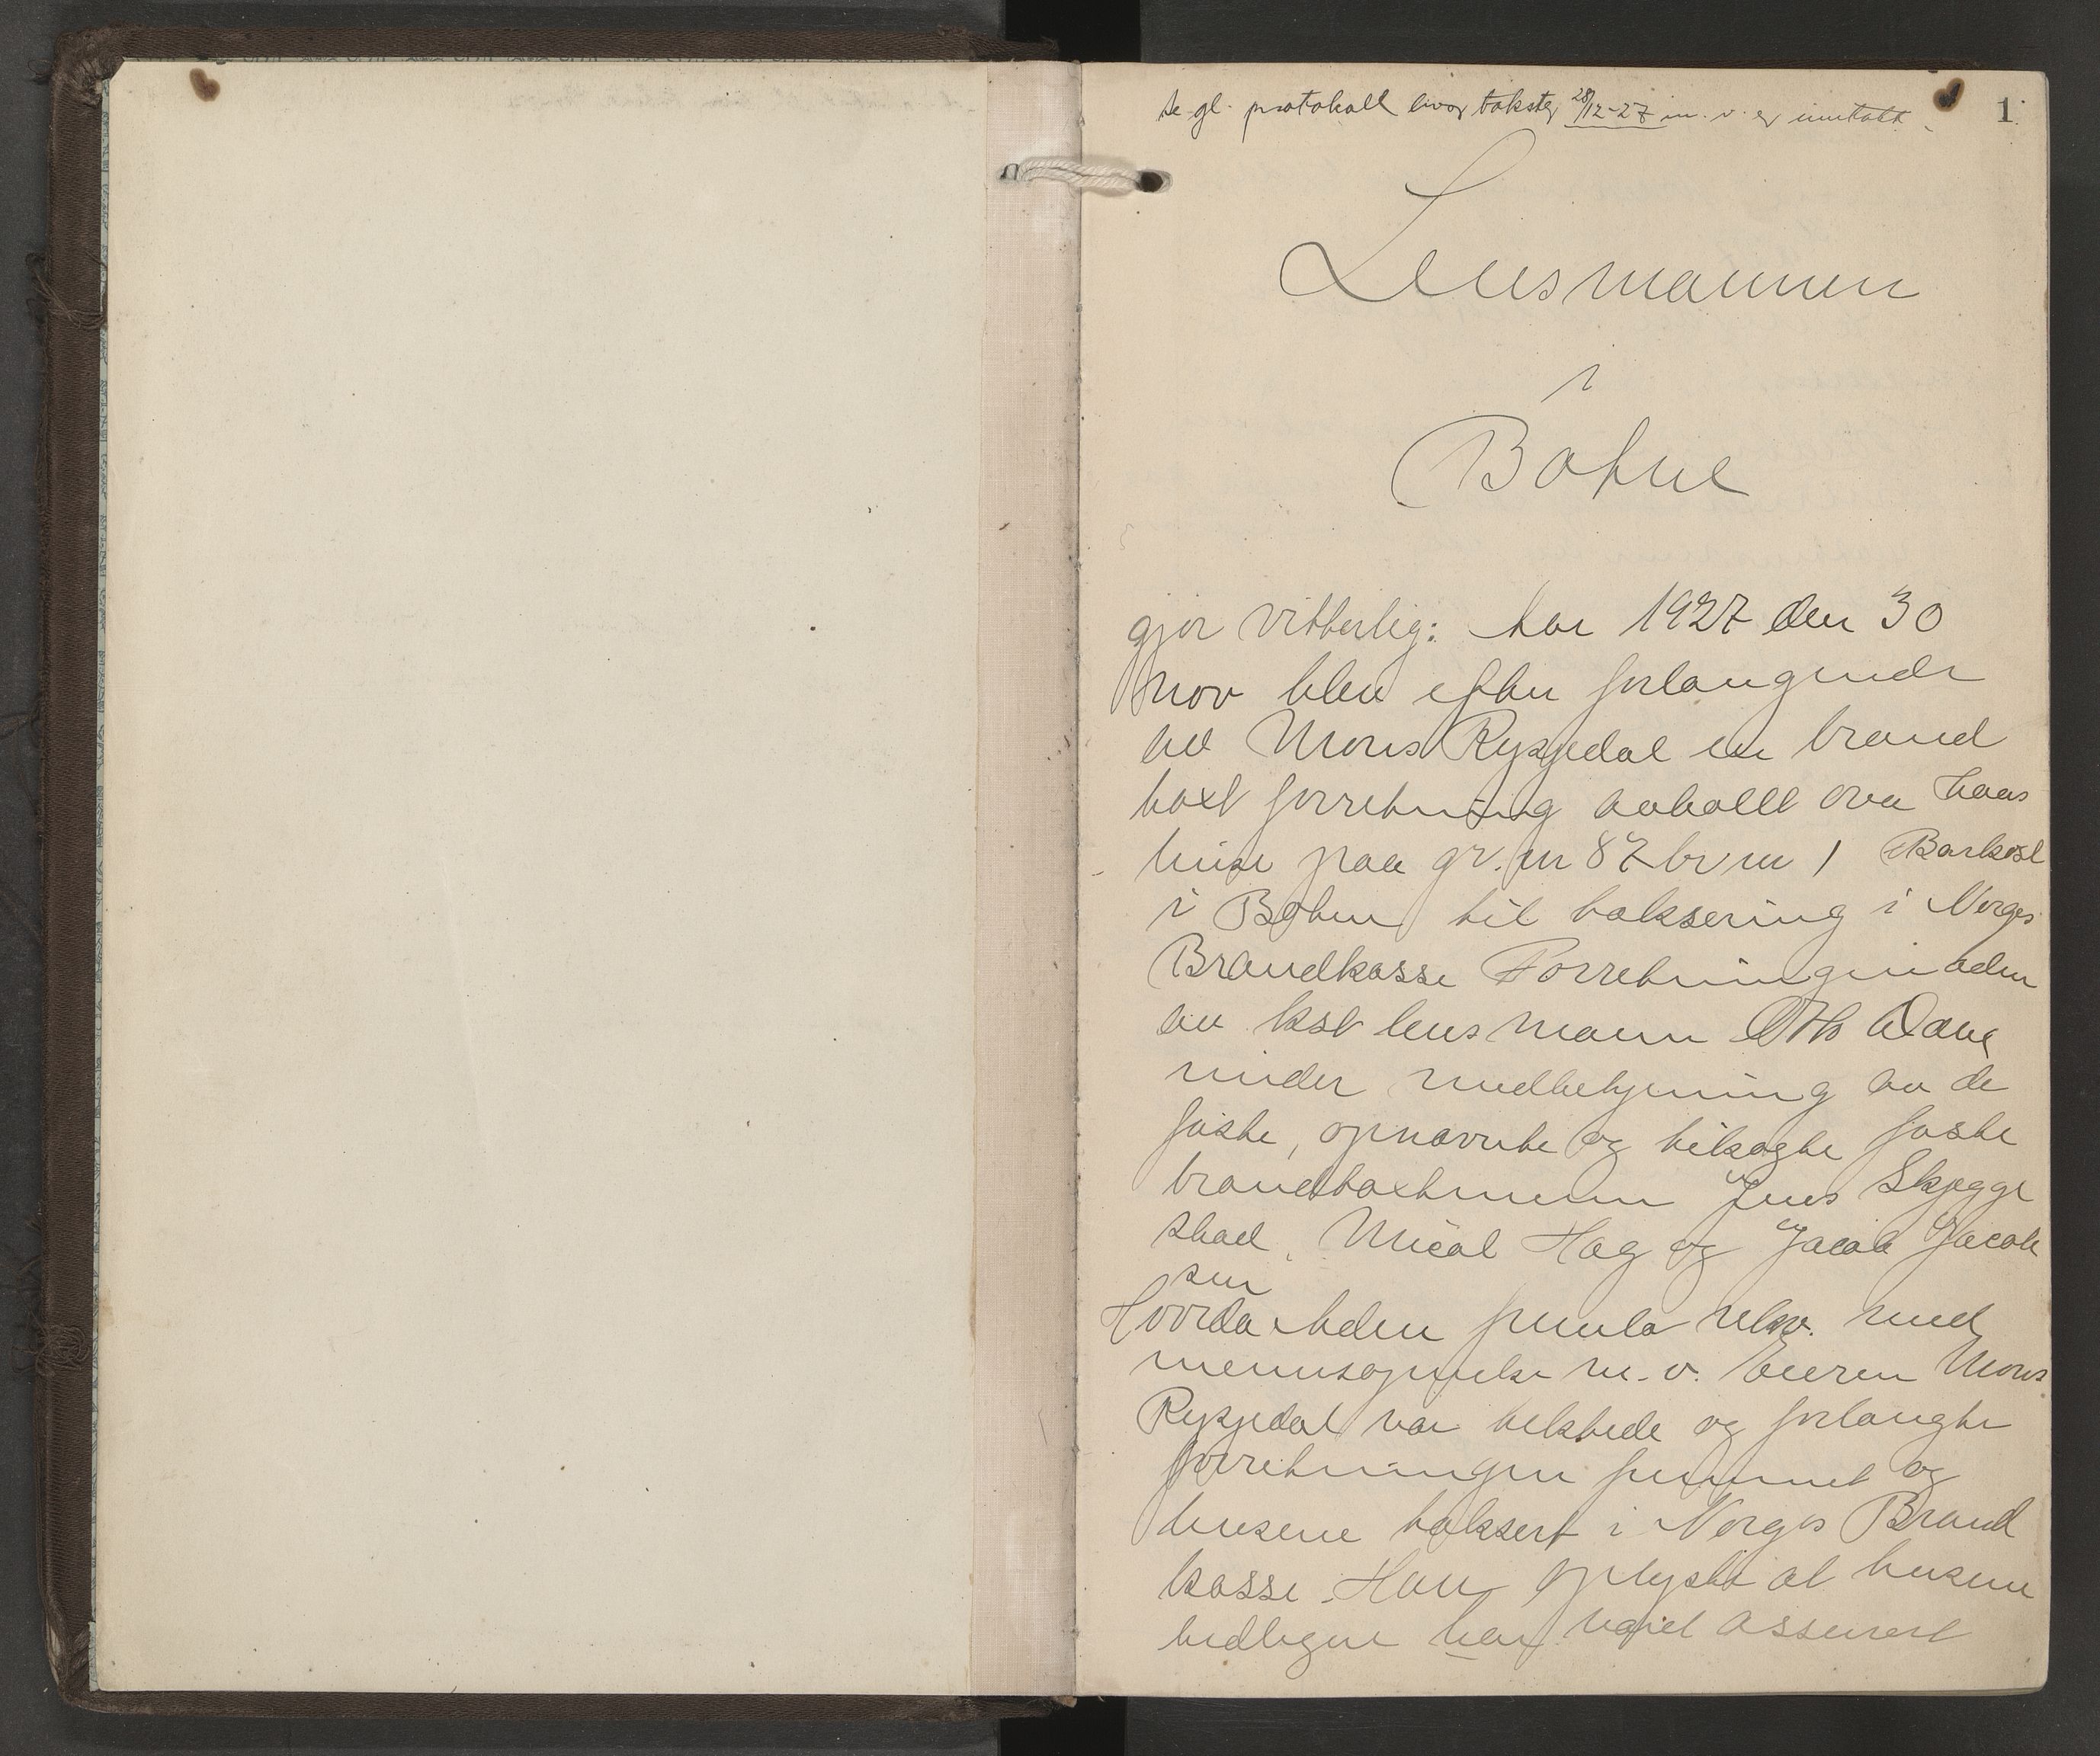 Se gl. protokoll hvor takster 28/12-27 m. v. er inntatt
1
Lensmannen
i
Bokne
gjør vitterlig: Aar 1927 den 30
nov blev efter forlangende
av Mons Rygjedal en brand
taxt forretning avholdt over hans
huse paa gr. nr 87 br nr 1 Barkost
i Bokne til taksering i Norges
Brandkasse Forretningen
av kst lensmann
under medbetjening av de
faste, opnævnte og tiltagte faste
brandtaxtmenn Jens Skjegge
stad, Mical Hag og Jacob Jacob
sen
fremla rekv. med
mennsopnevnelse m. v. Eieren Mons
Rygjedal var tilstede og forlangte
forretningen fremmet og
husene taksert i Norges Brand
kasse. Han oplyste at husene
tidligere har været assurert